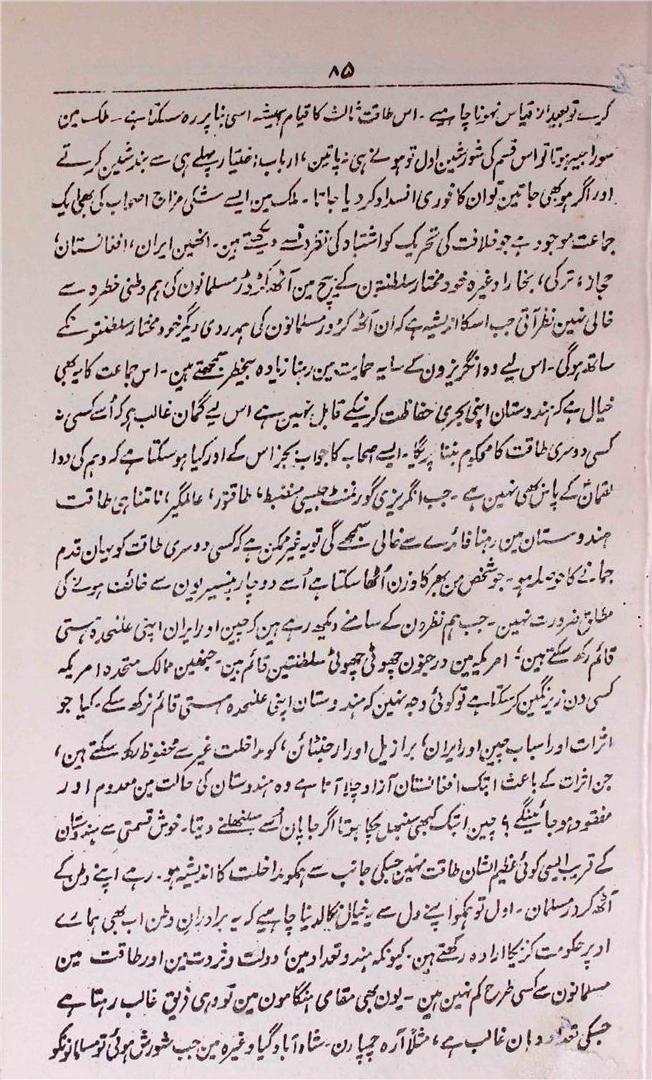 ۸۵
کرے تو بعید از قیاس نہونا چاہیے ۔ اس طاقت ثالث کا قیام ہمیشہ اسی بنا پر رہ سکتا ہے ۔ ملک مین
سوراجیہ ہوتا تو اس قسم کی شورشین اول تو ہونے ہی نہ پاتین، ارباب اختیار پہلے ہی سے بندشین کرتے
اور اگر ہو بھی جاتین تو ان کا فوری انسداد کر دیا جاتا ۔ ملک مین ایسے شکی مزاج اصحاب کی بھی ایک
جماعت موجود ہے جو خلافت کی تحریک کو اشتباہ کی نظر سے دیکھتے ہین۔ انھین ایران، افغانستان،
حجاز، ترکی، بخارا وغیرہ خود مختار سلطنتون کے بیچ مین آٹھ کروڑ مسلمانون کی ہم وطنی خطرہ سے
خالی نہین نظر آتی جب اسکا اندیشہ ہے کہ ان آٹھ کروڑ مسلمانون کی ہمدردی دیگر خود مختار سلطنتو نکے
ساتھ ہوگی۔ اس لیے وہ انگریزون کے سایہ حمایت مین رہنا زیادہ بیخطر سمجھتے ہین۔ اس جماعت کا یہ بھی
خیال ہے کہ ہندوستان اپنی بحری حفاظت کرنیکے قابل نہین ہے اس لیے گمان غالب ہو کہ اُسے کسی نہ
کسی دوسری طاقت کا محکوم بننا پڑیگا۔ ایسے اصحاب کا جواب بجز اس کے اور کیا ہو سکتا ہے کہ وہم کی دوا
لقمان کے پاس بھی نہین ہے ۔ جب انگریزی گورنمنٹ جیسی منضبط، طاقتور، عالمگیر، ناتناہی طاقت
ہندوستان مین رہنا فائدے سے خالی سمجھے گی تو یہ غیر ممکن ہے کہ کسی دوسری طاقت کو یہان قدم
جمانے کا حوصلہ ہو۔ جو شخص من بھر کا وزن اُٹھا سکتا ہے اُسے دو چار پنسیریون سے خائف ہونے کی
مطلق ضرورت نہین ۔ جب ہم نظرون کے سامنے دیکھ رہے ہین کہ چین اور ایران اپنی علٰحدہ ہستی
قائم رکھ سکتے ہین، امریکہ مین درجنون چھوٹی چھوٹی سلطنتین قائم ہین۔ جنھین ممالک متحدہ امریکہ
کسی دن زیرنگین کر سکتا ہے تو کوئی وجہ نہین کہ ہندوستان اپنی علٰحدہ ہستی قائم نہ رکھ سکے ۔ کیا جو
اثرات اور اسباب چین اور ایران، برازیل اور ارجنٹائن، کو مداخلت غیر سے محفوظ رکھ سکتے ہین،
جن اثرات کے باعث ابتک افغانستان آزاد چلا آتا ہے وہ ہندوستان کی حالت مین معدوم اور
مفقود ہو جائینگے ؟ چین ابتک کبھی سنبھل چکا ہوتا اگر جاپان اُسے سنبھلنے دیتا۔ خوش قسمتی سے ہندوستان
کے قریب ایسی کوئی عظیم الشان طاقت نہین جسکی جانب سے ہمکو مداخلت کا اندیشہ ہو ۔ رہے اپنے وطن کے
آٹھ کروڑ مسلمان ۔ اول تو ہمکو اپنے دل سے یہ خیال نکالدینا چاہیے کہ یہ برادران وطن اب بھی ہمارے
اوپر حکومت کرنیکا ارادہ رکھتے ہین ۔ کیونکہ ہندو تعداد مین، دولت و ثروت مین اور طاقت مین
مسلمانون سے کسی طرح کم نہین ہین ۔ یون بھی مقامی ہنگامون مین تو وہی فریق غالب رہتا ہے
جسکی تعداد وہان غالب ہے، مثلاً آرہ چمپارن ۔ شاہ آباد گیا وغیرہ مین جب شورش ہوئی تو مسلمانونکو